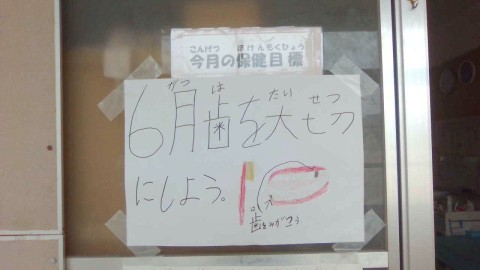 こんげつ ほけんもくひょう
今月の保健目標
がつ は たい せつ
6月歯を大切
にしよう。
歯をみがこう